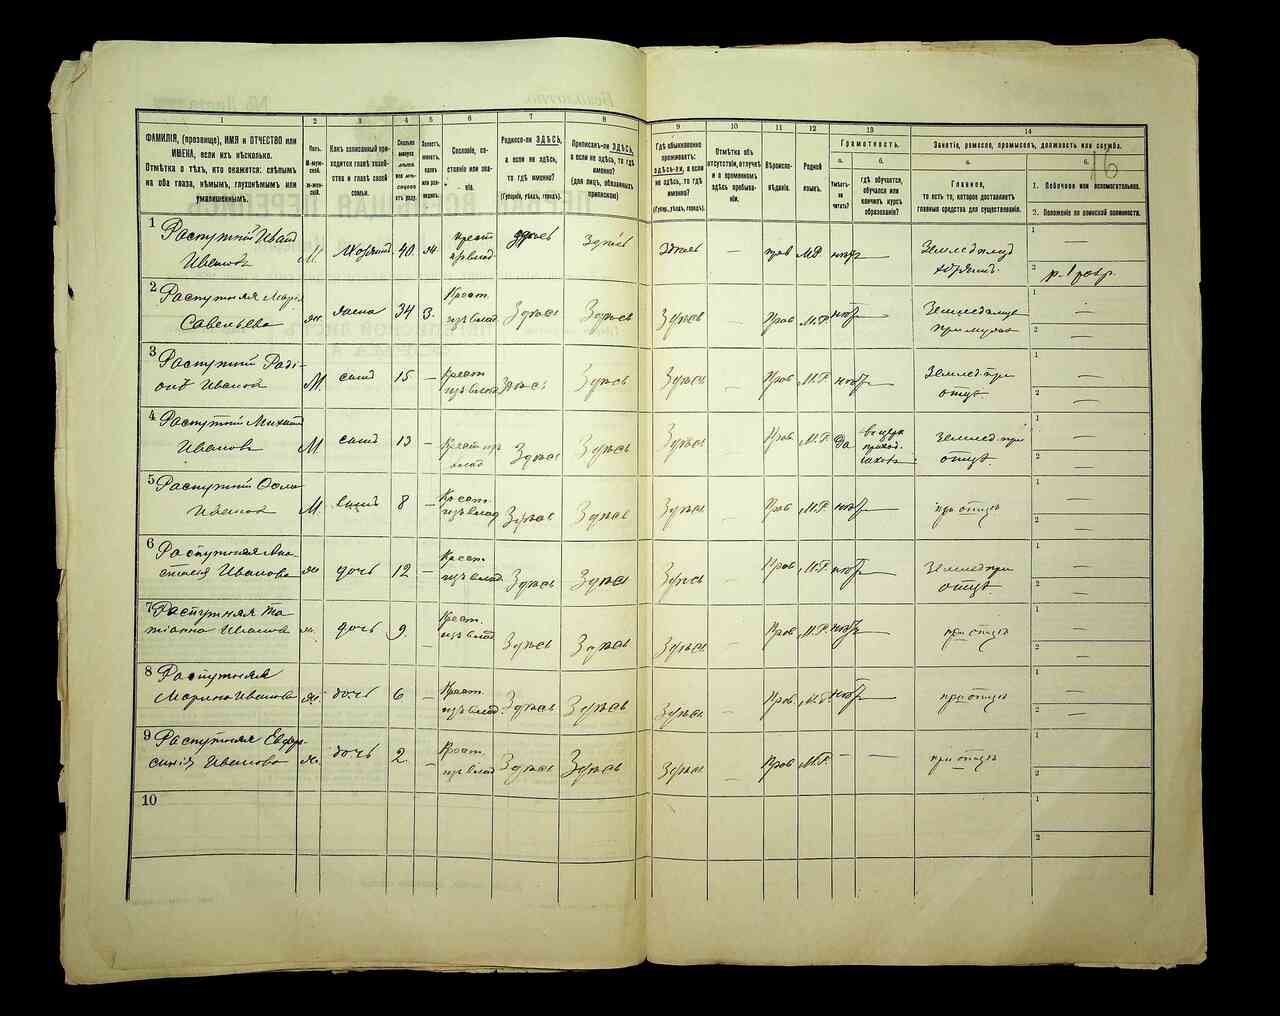 16
1 2 3 4 5 6 7 8 9 10 11 12 13 14
ФАМИЛІЯ, (прозвище), ИМЯ и ОТЧЕСТВО или ИМЕНА, если ихъ нѣсколько.
Отмѣтка о тѣхъ, кто окажется: слѣпымъ на оба глаза, нѣмымъ, глухонѣмымъ или умалишеннымъ.
Полъ.
М-мужской.
Ж-женскій.
Какъ записанный приходится главѣ хозяйства и главѣ своей семьи.
Сколько минуло лѣтъ
Сословіе, состояніе или званіе.
Родился-ли ЗДѢСЬ, а если не здѣсь, то гдѣ именно?
(Губернія, уѣздъ, городъ).
Приписанъ-ли ЗДѢСЬ, а если не здѣсь, то гдѣ именно?
(для лицъ, обязанныхъ припиской)
Гдѣ обыкновенно проживаетъ: здѣсь-ли, а если не здѣсь, то гдѣ именно?
(Губер., уѣздъ, городъ).
Отмѣтка объ отсутствіи, отлучкѣ и о временномъ здѣсь пребываніи.
Вѣроисповѣданіе.
Родной языкъ.
Грамотность.
а. б.
Умѣетъ-ли читать?
гдѣ обучается, обучался или кончилъ курсъ образованія?
Занятіе, ремесло, промыселъ, должность или служба.
а. б.
Главное,
то есть то, которое доставляетъ главныя средства для существованія.
1. Побочное или вспомогательное.
2. Положеніе по воинской повинности.
1 Распутній Иванъ Ивановъ М 40 Крест. Здѣсь Здѣсь Здѣсь — прав М.Р. нѣтъ —
2 Распутняя Марія Савельева ж жена 34 З. Крест. изъ влад Здѣсь Здѣсь Здѣсь — Прав М.Р. нѣтъ — при мужѣ
3 Распутній Радіонъ Ивановъ М. сынъ 15 — Крест изъ влад Здѣсь Здѣсь Здѣсь — Прав М.Р. нѣтъ — Землед. при отцѣ
4 Распутній Михаилъ Ивановъ М сынъ 13 — Крест изъ влад Здѣсь Здѣсь Здѣсь — Прав М.Р. Да Землед. при отцѣ
5 Распутній Ивановъ М. сынъ 8 — Крест. изъ влад Здѣсь Здѣсь Здѣсь — Прав М.Р. нѣтъ — при отцѣ
6 Распутняя Анастасія Иванова ж дочь 12 — Крест изъ влад Здѣсь Здѣсь Здѣсь — Прав М.Р. нѣтъ — Землед. при отцѣ
7 Распутняя Татіанна Иванова ж. дочь 9. — Крест. изъ влад Здѣсь Здѣсь Здѣсь — Прав М.Р. нѣтъ — при отцѣ
8 Распутняя Марина Иванова ж. дочь 6 — Крест. изъ влад. Здѣсь Здѣсь Здѣсь — Прав. М.Р. нѣтъ — при отцѣ
9 Распутняя Евфросинія Иванова ж. дочь 2. — Крест. изъ влад Здѣсь Здѣсь Здѣсь — Прав М.Р. — — при отцѣ
10